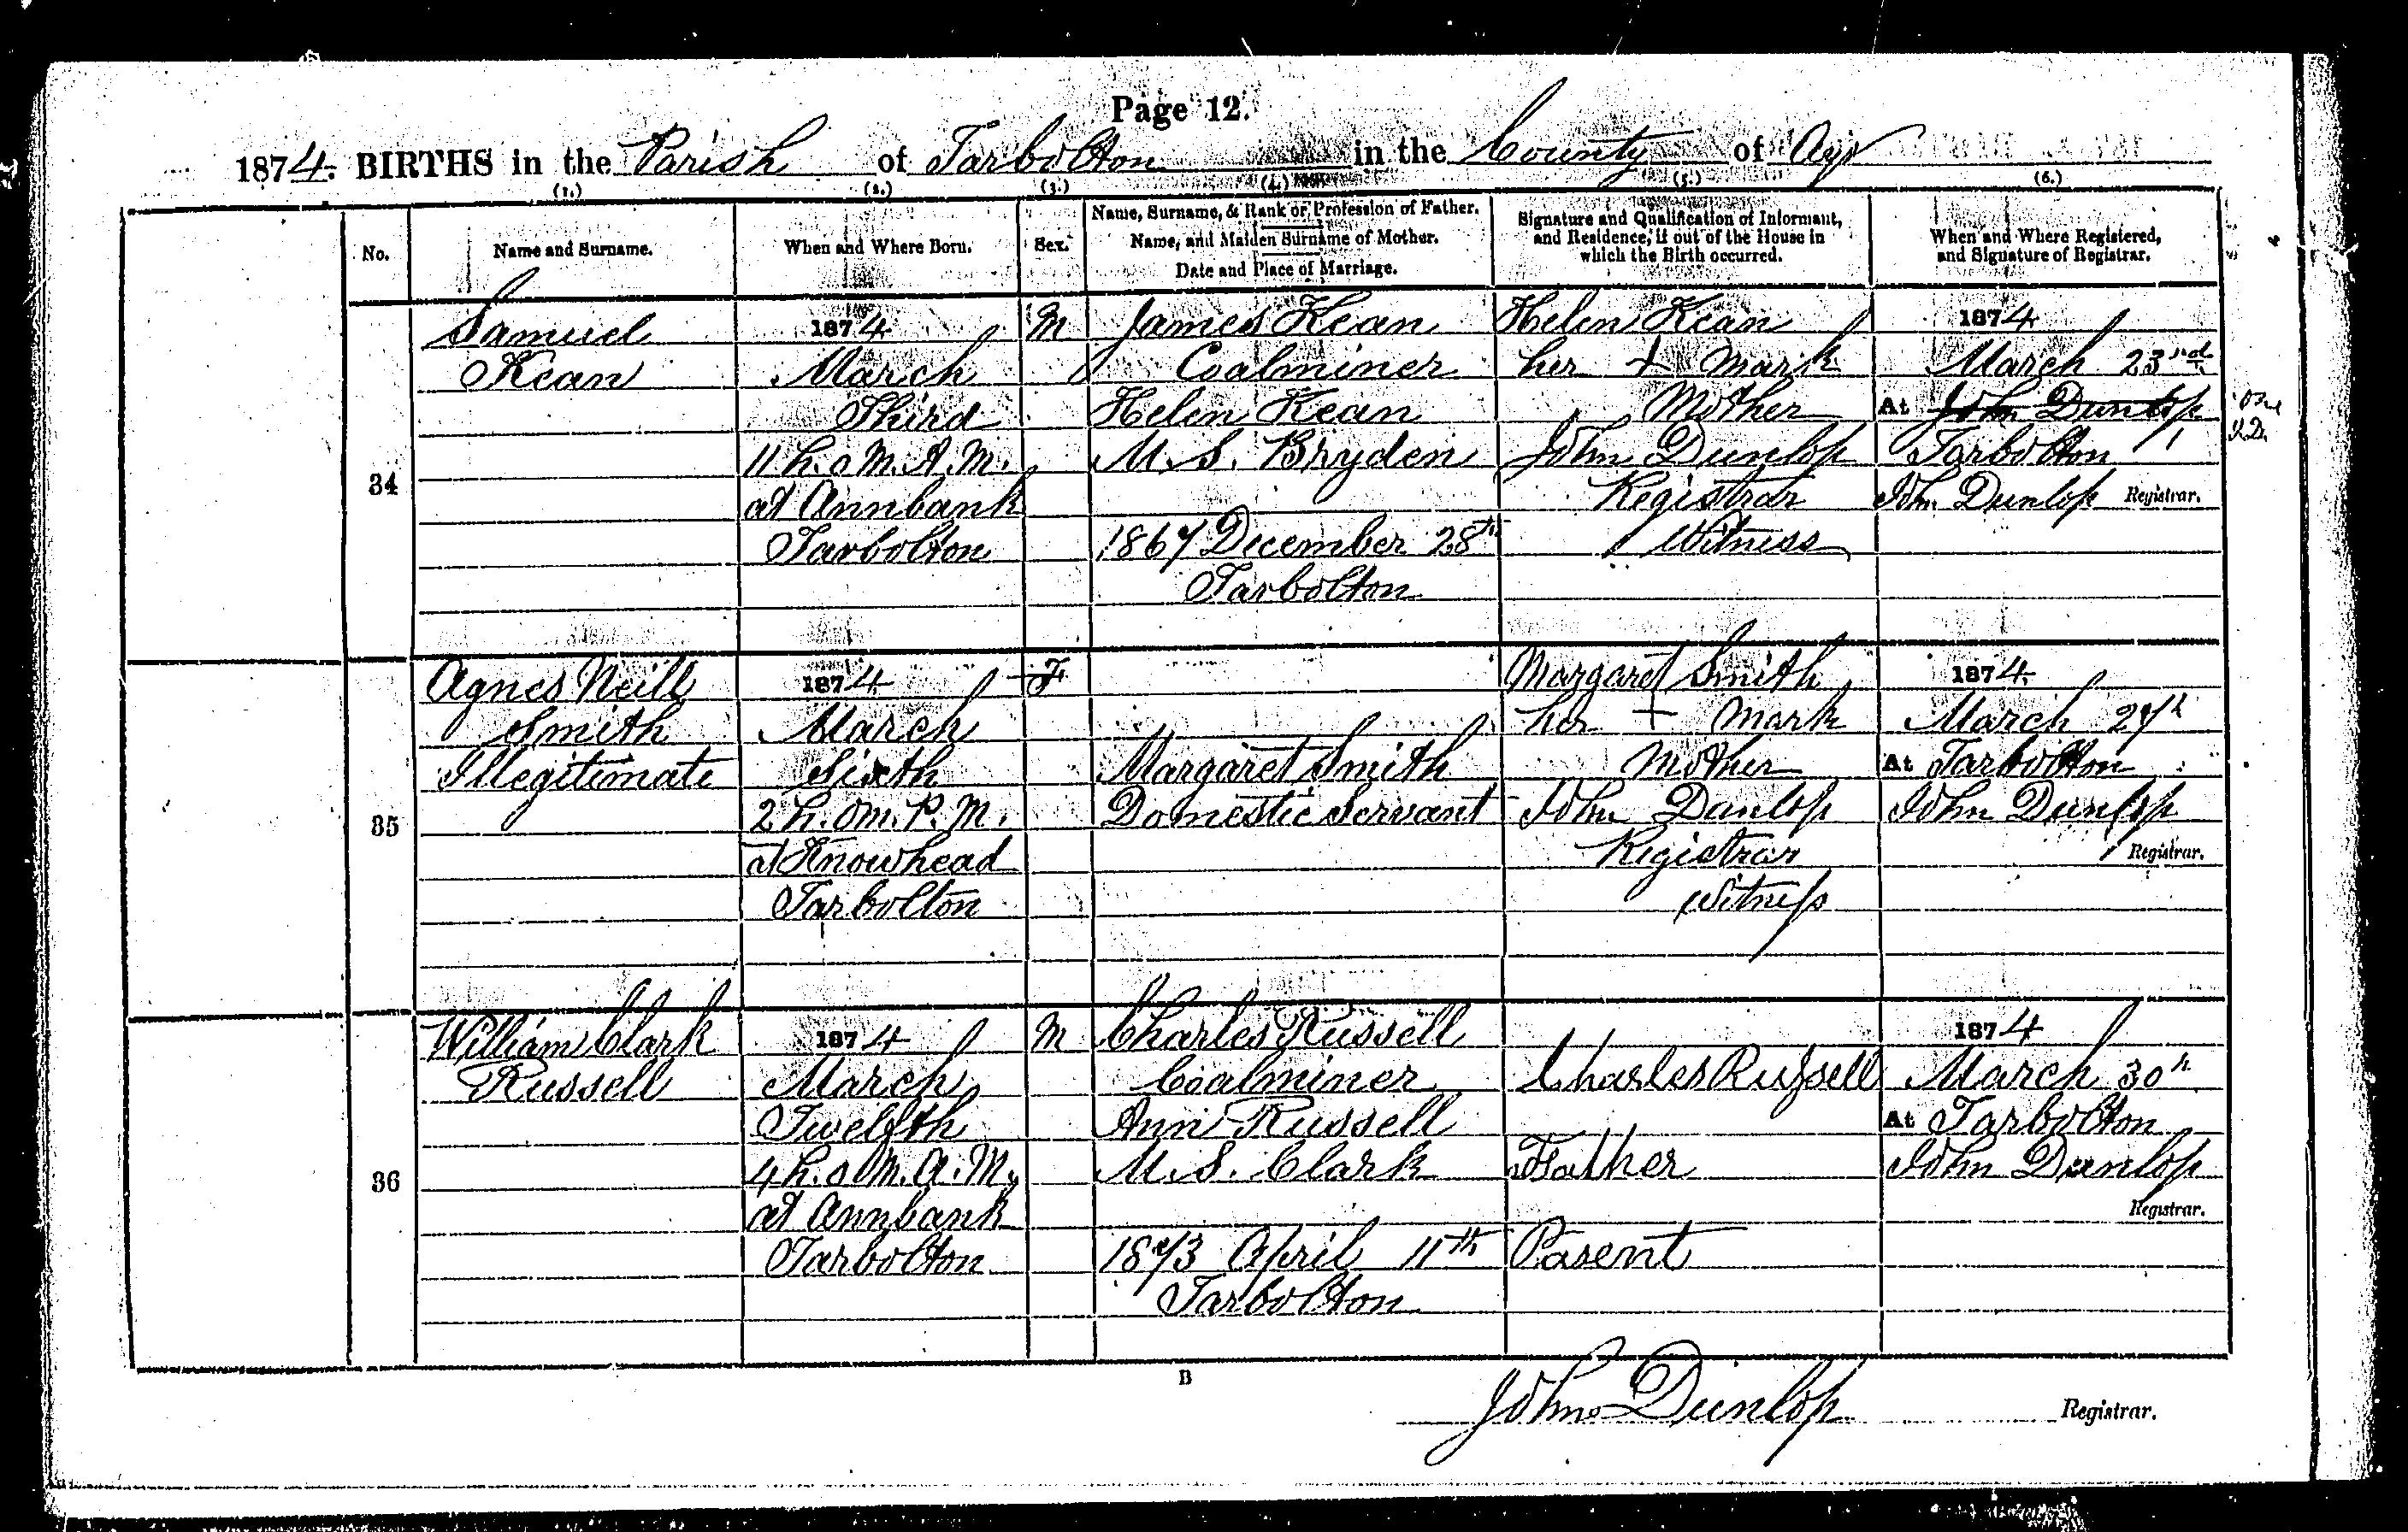 Page 12.
1874. BIRTHS in the Parish of Tarbolton in the County of Ayr
(1.) (2.) (3.) (4.) (5.) (6.)
No.
Name and Surname.
When and Where Born.
Sex.
Name, Surname, & Rank or Profession of Father.
Name, and Maiden Surname of Mother.
Date and Place of Marriage.
Signature and Qualification of Informant,
and Residence, if out of the House in
which the Birth occurred.
When and Where Registered,
and Signature of Registrar.
34
Samuel
Kean
1874
March
Third
11 h. 0 M. A. M.
at Annbank
Tarbolton
M
James Kean
Coalminer
Helen Kean
M. S. Bryden
1867 December 28th
Tarbolton
Helen Kean
her + mark
Mother
John Dunlop
Registrar
Witness
1874
March 23rd
At John Dunlop
Tarbolton
John Dunlop Registrar.
one
J.D.
35
Agnes Neill
Smith
Illegitimate
1874
March
Sixth
2 h. 0 m. P. M.
at Knowhead
Tarbolton
F
Margaret Smith
Domestic Servant
Margaret Smith
her + mark
Mother
John Dunlop
Registrar
Witness
1874
March 27th
At Tarbolton
John Dunlop
Registrar.
36
William Clark
Russell
1874
March
Twelfth
4 h. 0 M. A. M.
at Annbank
Tarbolton
M
Charles Russell
Coalminer
Ann Russell
M. S. Clark
1873 April 11th
Tarbolton
Charles Russell
Father
Parent
1874
March 30th
At Tarbolton
John Dunlop
Registrar.
B
John Dunlop Registrar.